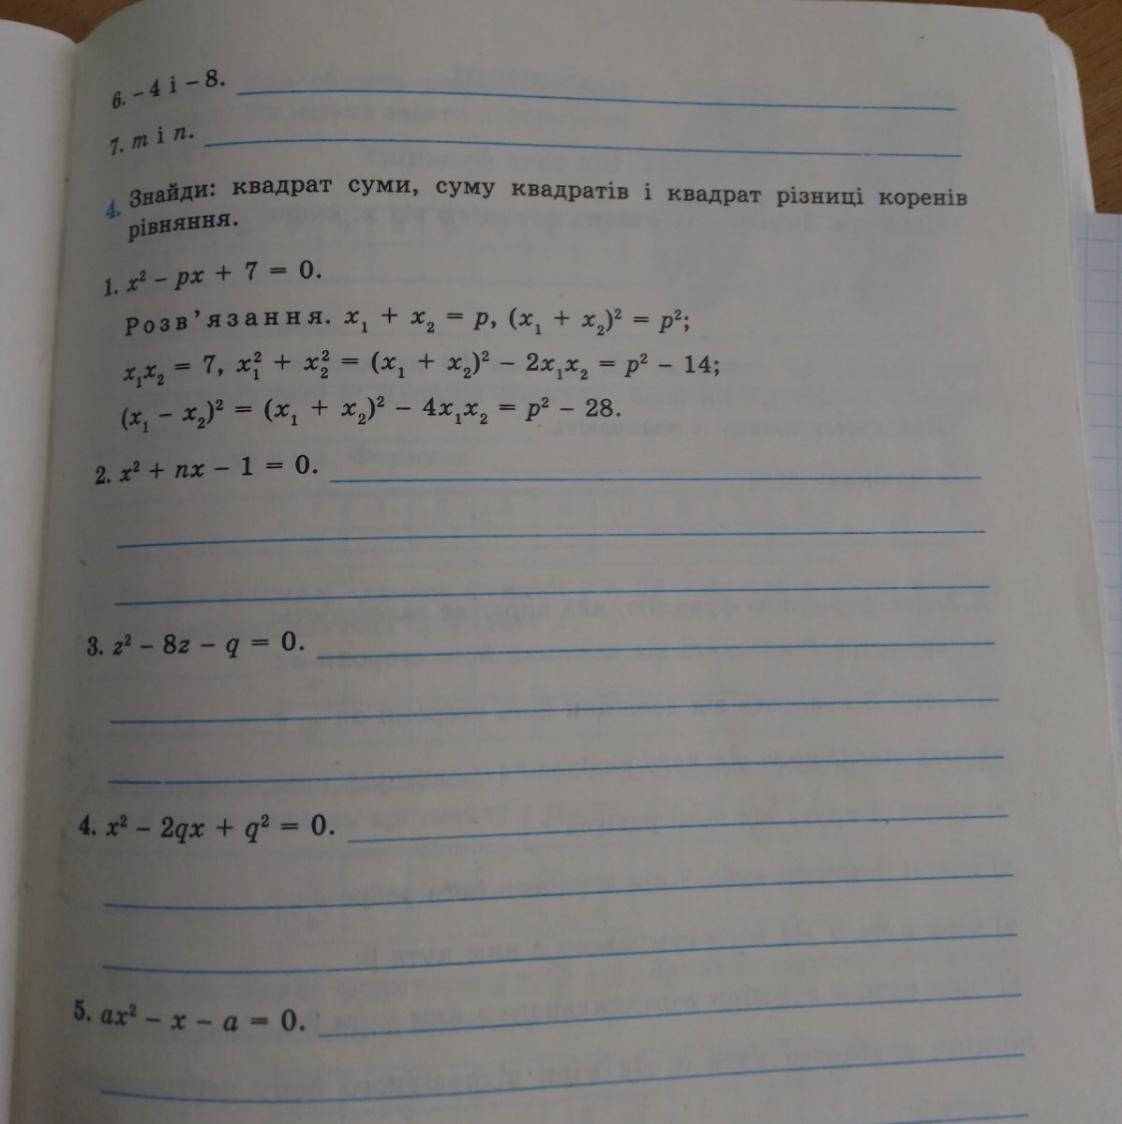 6. – 4 і – 8.
7. m і n.
4. Знайди: квадрат суми, суму квадратів і квадрат різниці коренів
рівняння.
1. x² – px + 7 = 0.
Розв’язання. x₁ + x₂ = p, (x₁ + x₂)² = p²;
x₁x₂ = 7, x₁² + x₂² = (x₁ + x₂)² – 2x₁x₂ = p² – 14;
(x₁ – x₂)² = (x₁ + x₂)² – 4x₁x₂ = p² – 28.
2. x² + nx – 1 = 0.
3. z² – 8z – q = 0.
4. x² – 2qx + q² = 0.
5. ax² – x – a = 0.